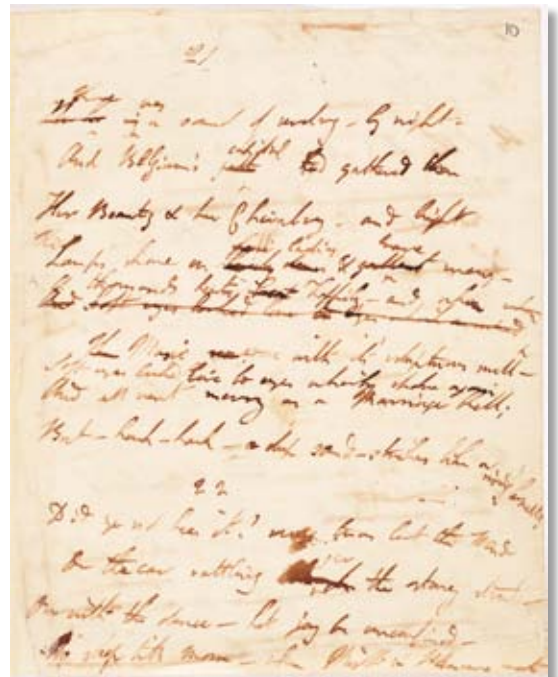 10
21
There was a sound of revelry - by night -
And Belgium's Capital had gathered then
Her Beauty & her Chivalry - and bright
Lamps shone on fair Ladies & brave men -
thousands hearts happily - and when
The Music with its voluptuous swell -
Soft eyes looked love to eyes which spake again
And all went merry as a Marriage Bell;
But - hush - hark - a deep sound - strikes like a rising knell
22
Did ye not hear it? was but the Wind
Or the car rattling o'er the stoney street -
On with the dance - let joy be unconfined -
No sleep till morn - when Youth & Pleasure meet